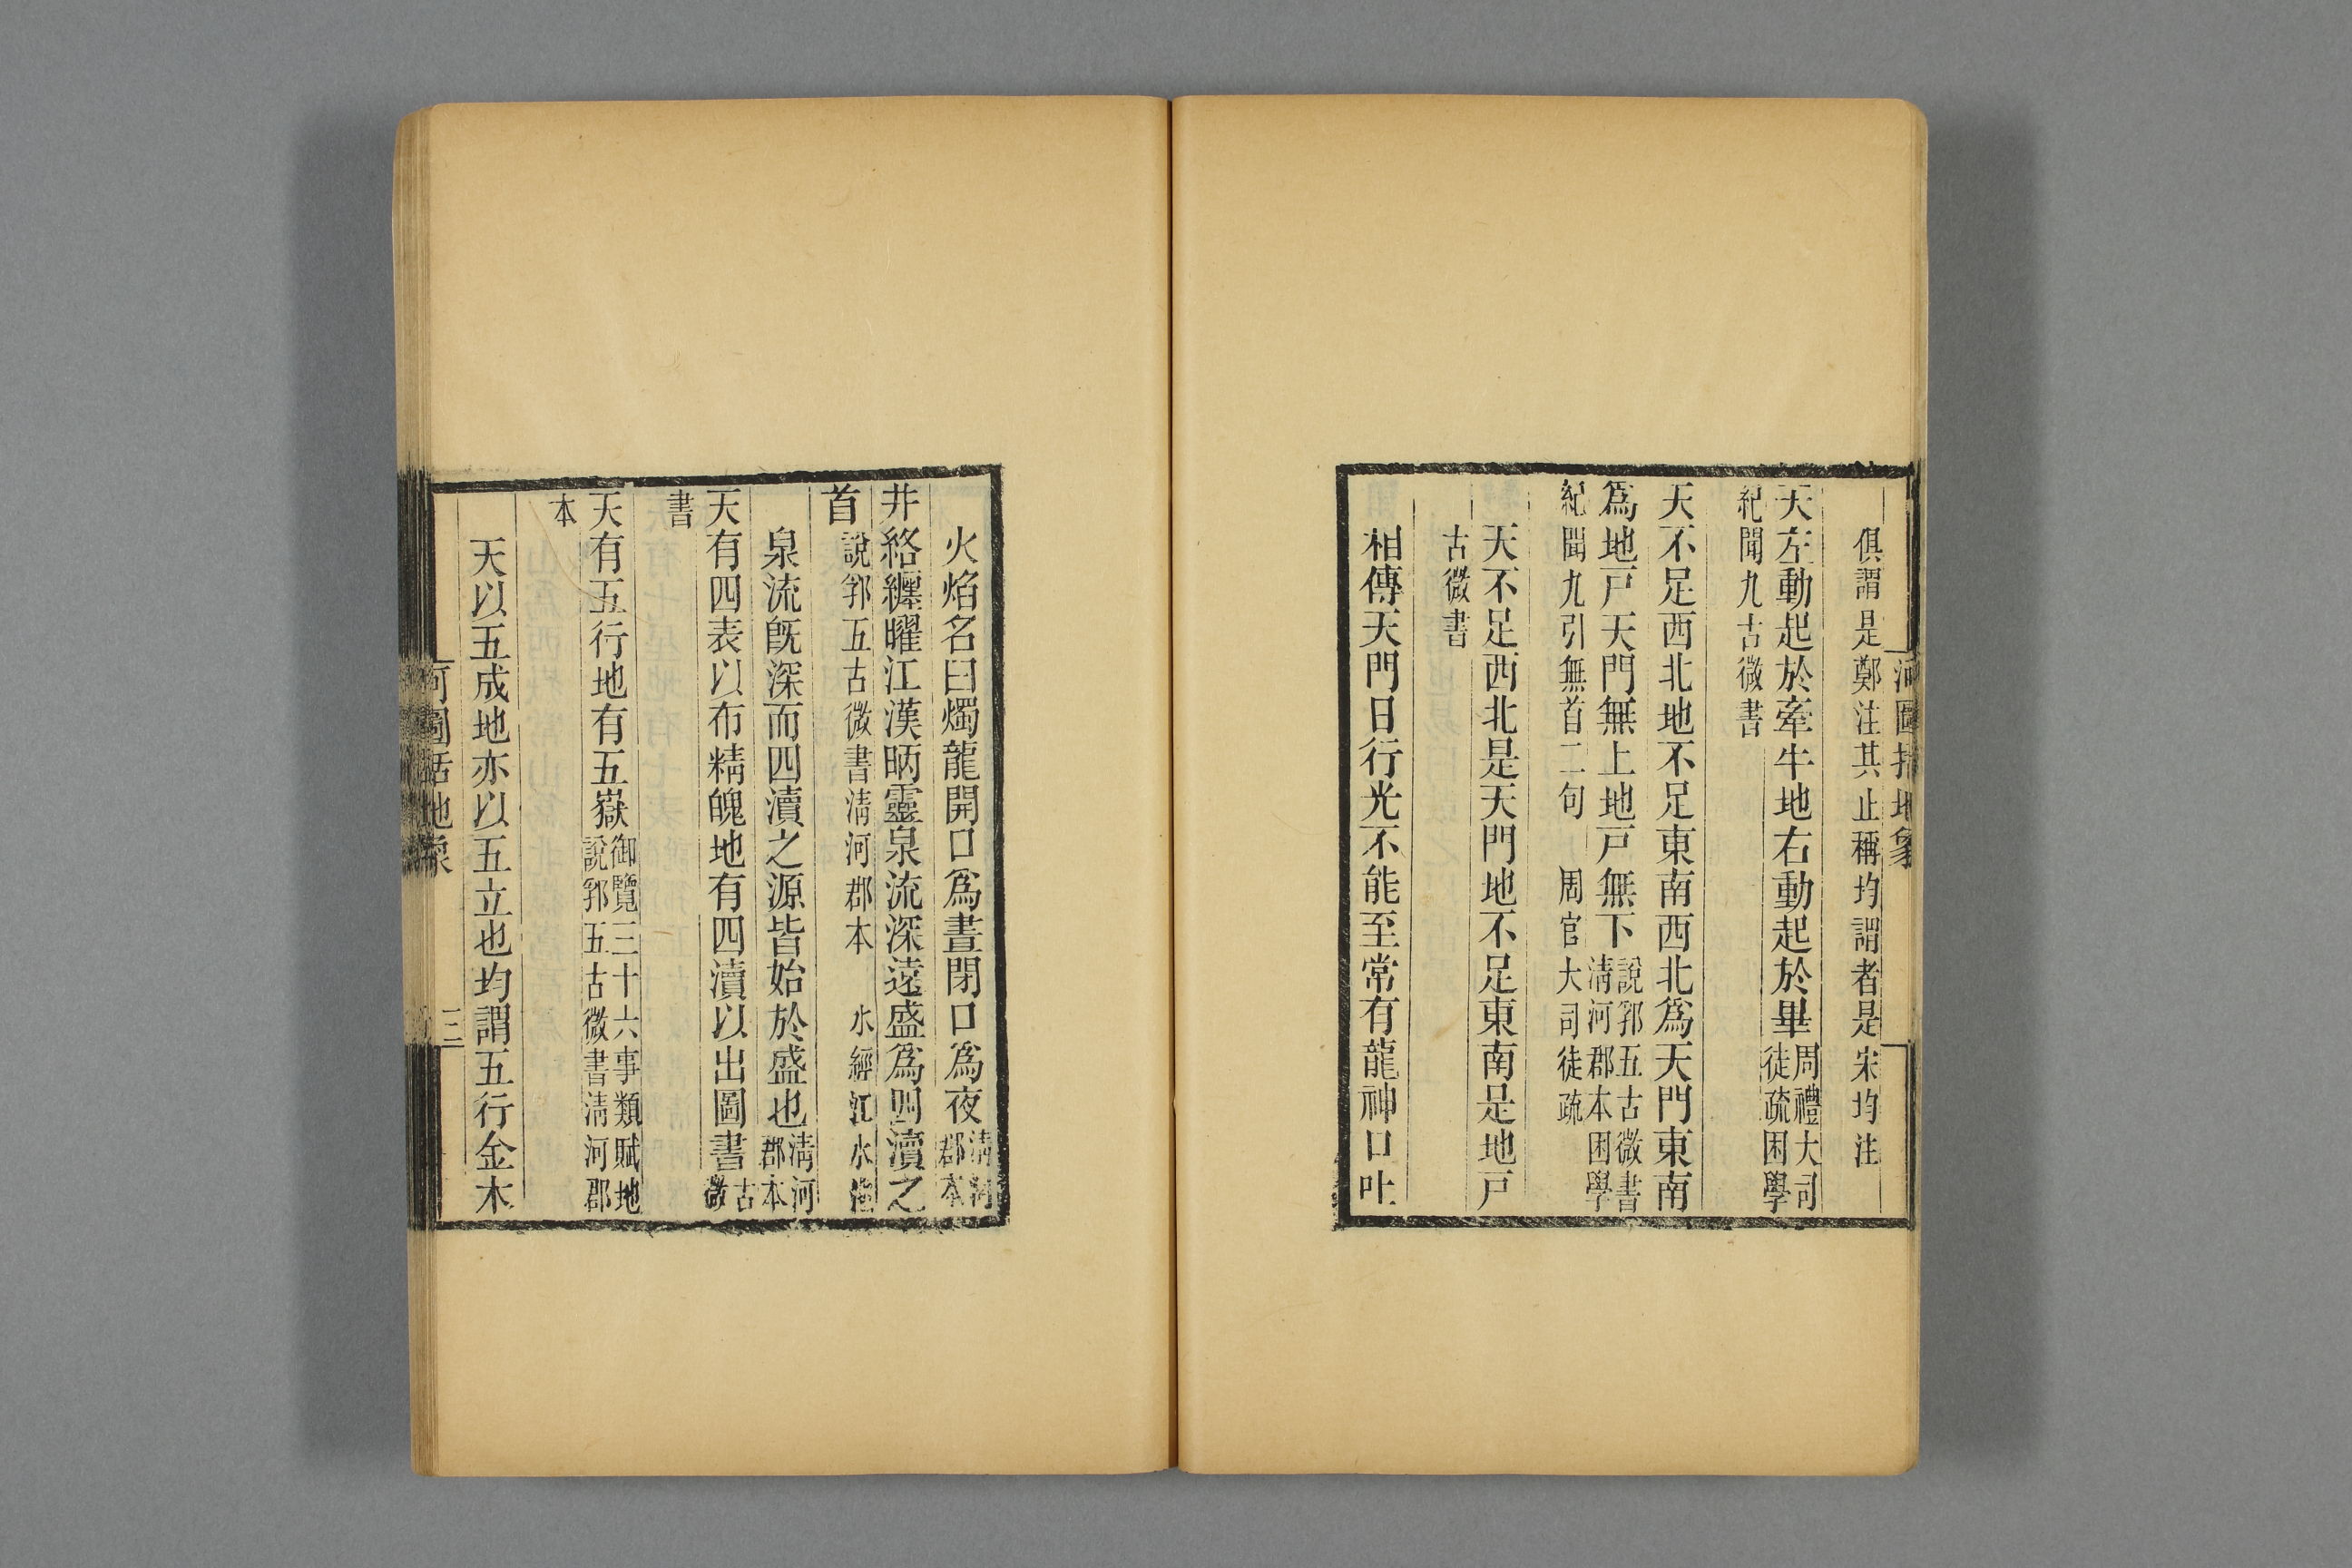 河圖括地象
俱謂是鄭注其止稱均謂者是宋均注
天左動起於牽牛地右動起於畢周禮大司徒疏困學
紀聞九古微書
天不足西北地不足東南西北爲天門東南
爲地戸天門無上地戸無下說郛五古微書淸河郡本困學
紀聞九引無首二句　周官大司徒疏
天不足西北是天門地不足東南是地戸
古微書
相傳天門日行光不能至常有龍神口吐
火焰名曰燭龍開口爲晝閉口爲夜淸河郡本
井絡纏曜江漢昞靈泉流深遠盛爲四瀆之
首說郛五古微書淸河郡本　水經江水注
泉流旣深而四瀆之源皆始於盛也淸河郡本
天有四表以布精魄地有四瀆以出圖書古微
書
天有五行地有五嶽御覽三十六事類賦地說郛五古微書淸河郡
本
天以五成地亦以五立也均謂五行金木
河圖括地象
三